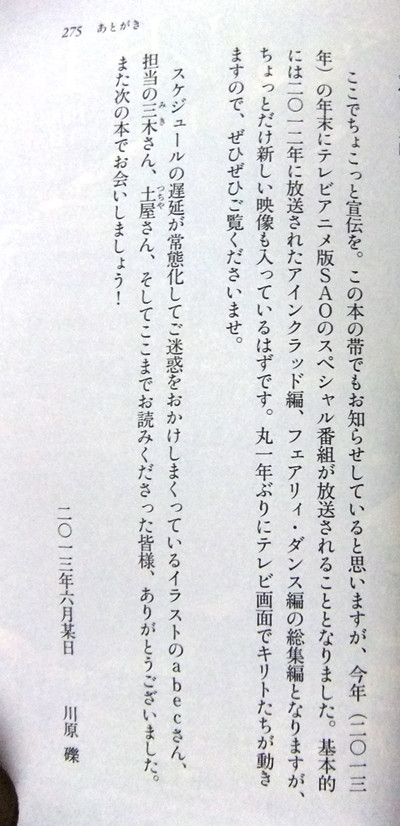 275 あとがき
ここでちょこっと宣伝を。この本の帯でもお知らせしていると思いますが、今年（二〇一三
年）の年末にテレビアニメ版ＳＡＯのスペシャル番組が放送されることとなりました。基本的
には二〇一二年に放送されたアインクラッド編、フェアリィ・ダンス編の総集編となりますが、
ちょっとだけ新しい映像も入っているはずです。丸一年ぶりにテレビ画面でキリトたちが動き
ますので、ぜひぜひご覧くださいませ。
スケジュールの遅延が常態化してご迷惑をおかけしまくっているイラストのａｂｅｃさん、
担当の三木さん、土屋さん、そしてここまでお読みくださった皆様、ありがとうございました。
また次の本でお会いしましょう！
二〇一三年六月某日　川原 礫